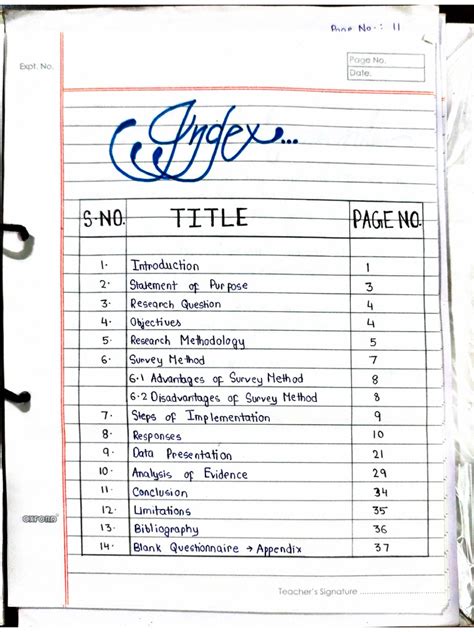 Page No.: 11
Expt. No.
Page No.
Date.
Index...
S·NO. TITLE PAGE NO.
1. Introduction 1
2. Statement of Purpose 3
3. Research Question 4
4. Objectives 4
5. Research Methodology 5
6. Survey Method 7
6.1 Advantages of Survey Method 8
6.2 Disadvantages of Survey Method 8
7. Steps of Implementation 9
8. Responses 10
9. Data Presentation 21
10. Analysis of Evidence 29
11. Conclusion 34
12. Limitations 35
13. Bibliography 36
14. Blank Questionnaire → Appendix 37
Teacher's Signature